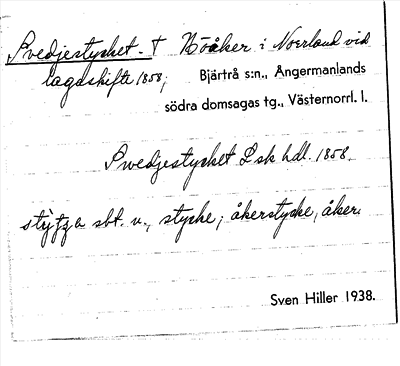 Svedjestycket. T Böåker i Norrland vid
lagaskifte 1858; Bjärtrå s:n., Ångermanlands
södra domsagas tg., Västernorrl. l.
Swedjestycket Lsk hdl. 1858.
sbt. n., stycke; åkerstycke, åker.
Sven Hiller 1938.